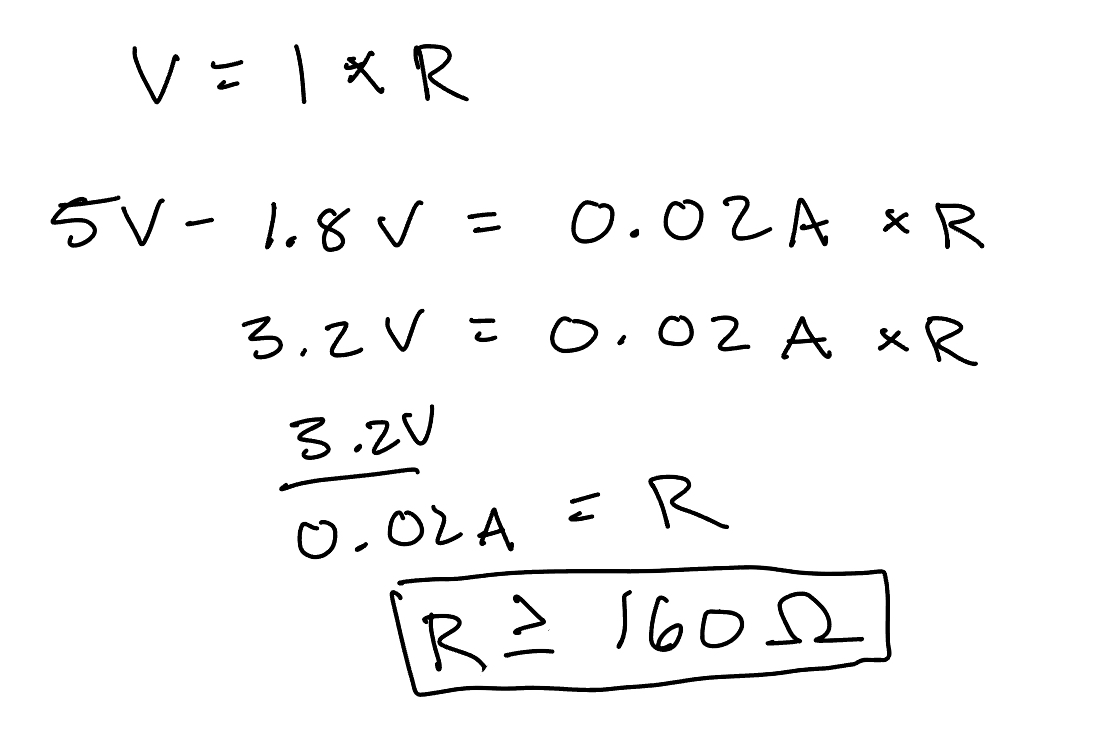 V = I × R
5V - 1.8V = 0.02A × R
3.2V = 0.02A × R
3.2V
0.02A = R
R ≥ 160Ω